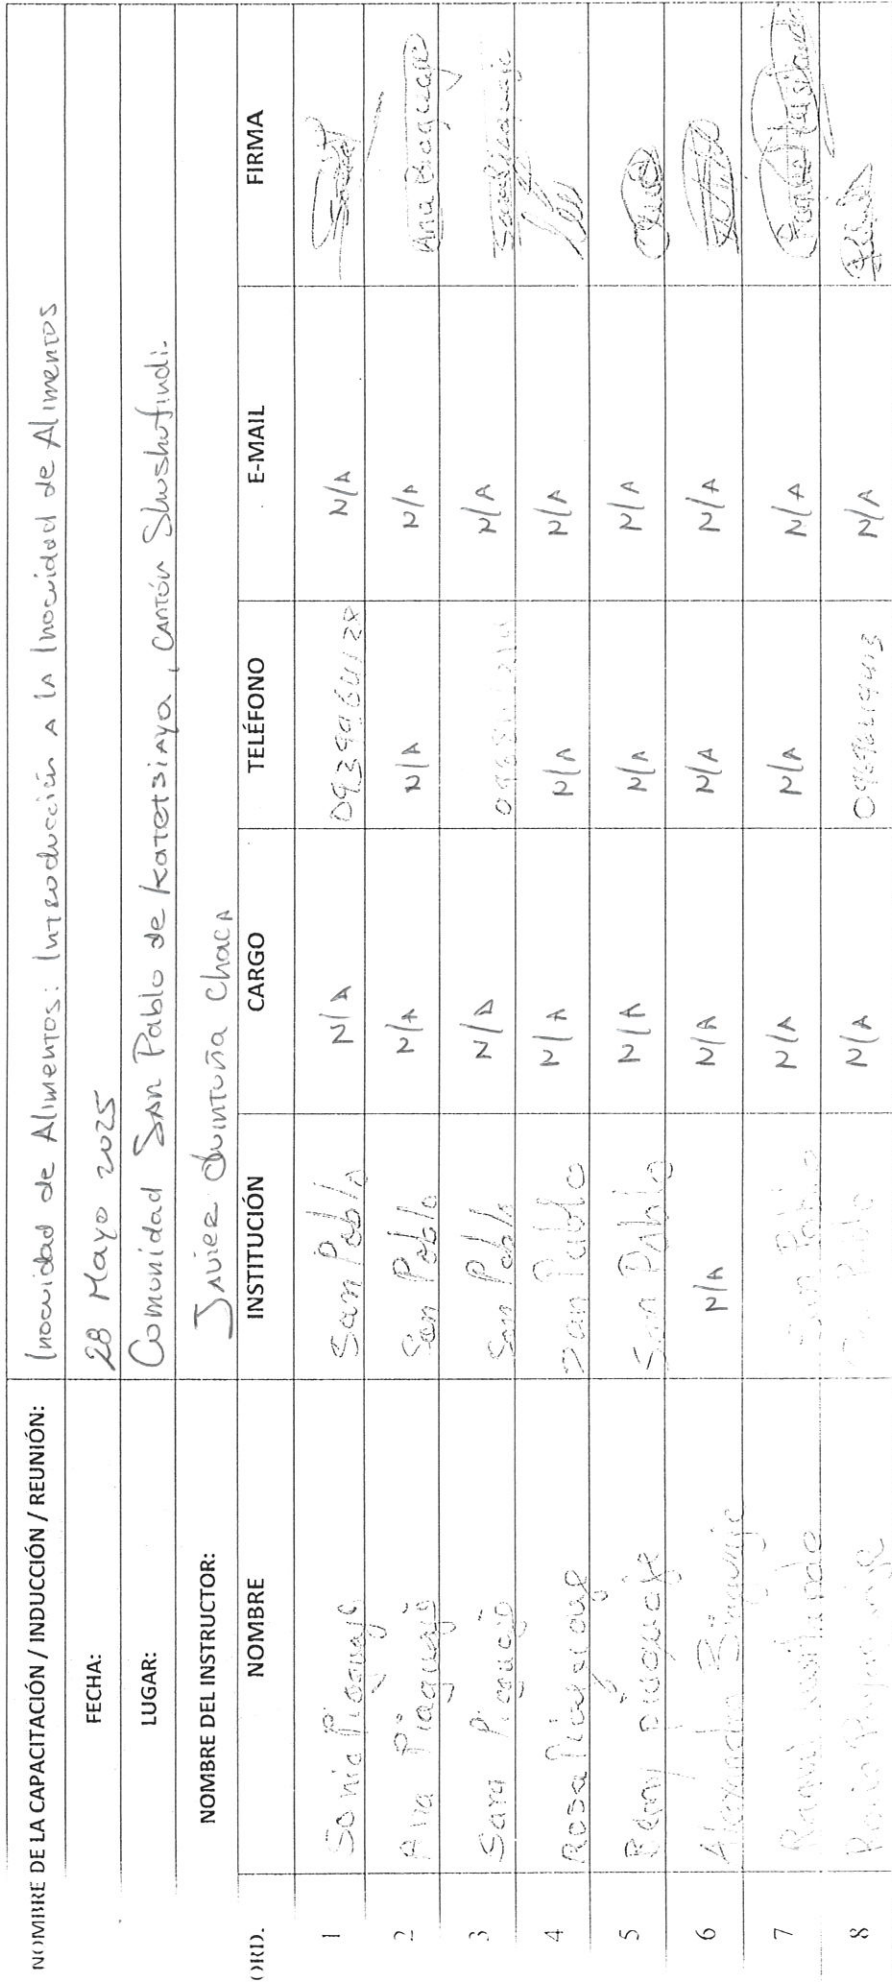 NOMBRE DE LA CAPACITACIÓN / INDUCCIÓN / REUNIÓN: Inocuidad de Alimentos: Introducción a la Inocuidad de Alimentos
FECHA: 28 Mayo 2025
LUGAR: Comunidad San Pablo de Katetsiaya, Cantón Shushufindi.
NOMBRE DEL INSTRUCTOR: Javier Quintuña Chaca
ORD. NOMBRE INSTITUCIÓN CARGO TELÉFONO E-MAIL FIRMA
1 Sonia Piaguaje San Pablo N/A 0939964128 N/A
2 Ana Piaguaje San Pablo N/A N/A N/A Ana Piaguaje
3 Sara Piaguaje San Pablo N/A N/A Sara Piaguaje
4 Rosa Piaguaje San Pablo N/A N/A N/A
5 piaguaje San Pablo N/A N/A N/A
6 N/A N/A N/A N/A
7 San Pablo N/A N/A N/A
8 Pablo N/A N/A